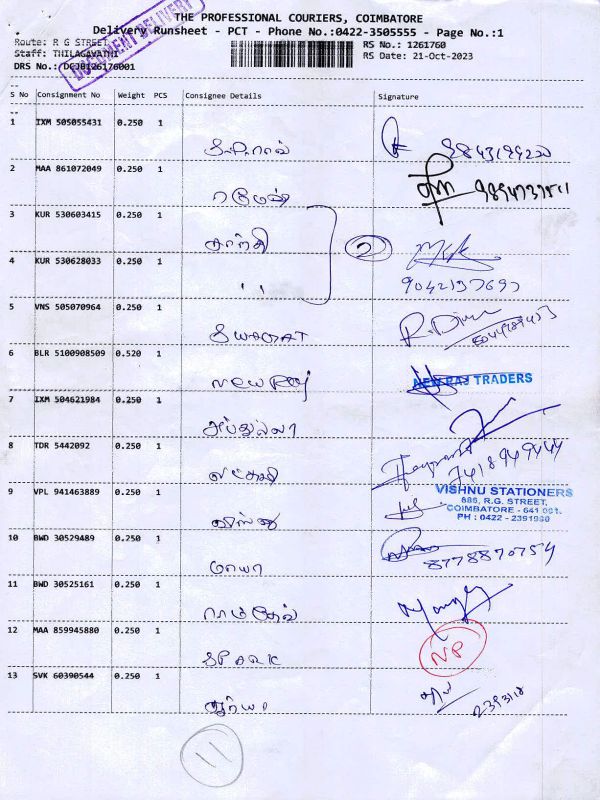 THE PROFESSIONAL COURIERS, COIMBATORE
Delivery Runsheet - PCT - Phone No.:0422-3505555 - Page No.:1
Route: R G STREET
Staff: THILAGAVATHI
DRS No.: DCJ0126176001
DOCUMENT DELIVERY
RS No.: 1261760
RS Date: 21-Oct-2023
S No Consignment No Weight PCS Consignee Details Signature
1 IXM 505055431 0.250 1
2 MAA 861072049 0.250 1 ரமேஷ்
3 KUR 530603415 0.250 1
2
4 KUR 530628033 0.250 1 " "
9042137697
5 VNS 505070964 0.250 1
6 BLR 5100908509 0.520 1 NEW RAJ NEW RAJ TRADERS
7 IXM 504621984 0.250 1 அப்துல்லா
8 TDR 5442092 0.250 1 லட்சுமி
7418949444
9 VPL 941463889 0.250 1 விஷ்ணு
VISHNU STATIONERS
686, R.G. STREET,
COIMBATORE - 641 001.
PH : 0422 - 2391980
10 BWD 30529489 0.250 1 மாயா 8778870754
11 BWD 30525161 0.250 1 ராம்தேவ்
12 MAA 859945880 0.250 1 SPARK NP
13 SVK 60390544 0.250 1 சூர்யா
11